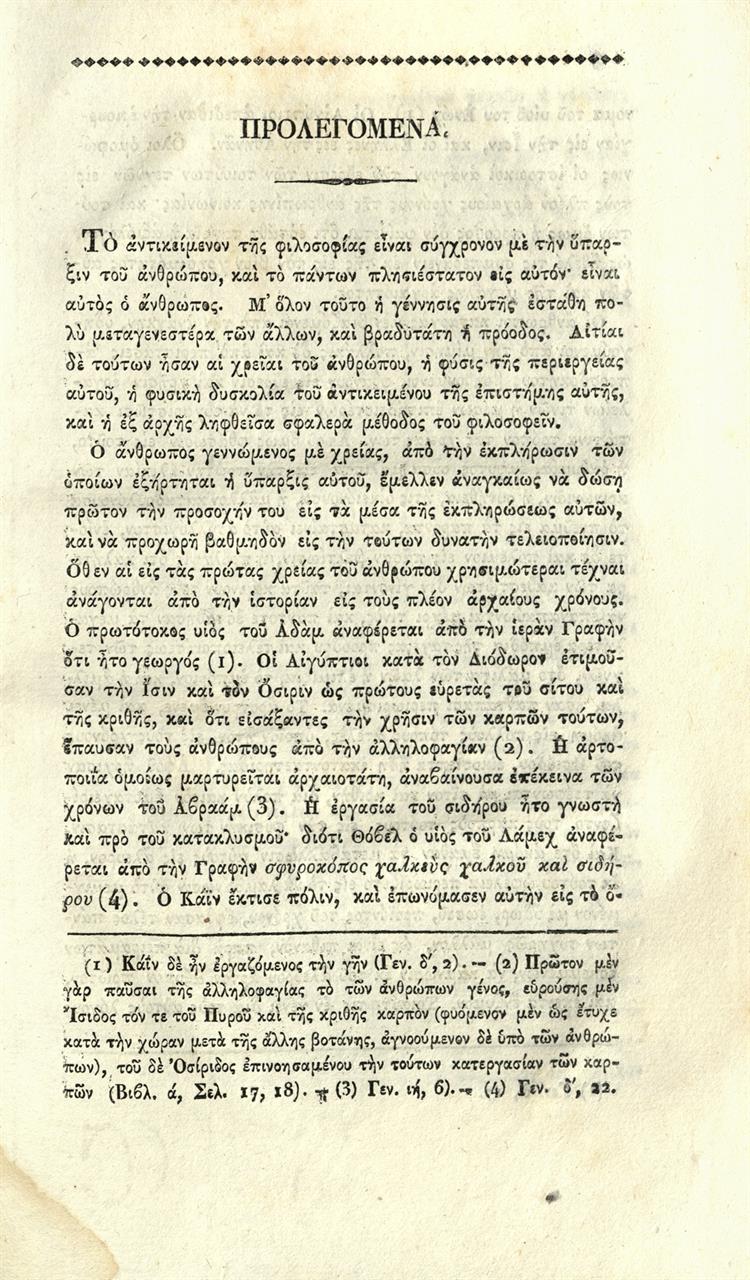 ΠΡΟΛΕΓΟΜΕΝΑ.
Τὸ ἀντικείμενον τῆς φιλοσοφίας εἶναι σύγχρονον μὲ τὴν ὕπαρ-
ξιν τοῦ ἀνθρώπου, καὶ τὸ πάντων πλησιέστατον εἰς αὐτόν· εἶναι
αὐτὸς ὁ ἄνθρωπος. Μ' ὅλον τοῦτο ἡ γέννησις αὐτῆς ἐστάθη πο-
λὺ μεταγενεστέρα τῶν ἄλλων, καὶ βραδυτάτη ἡ πρόοδος. Αἰτίαι
δὲ τούτων ἦσαν αἱ χρεῖαι τοῦ ἀνθρώπου, ἡ φύσις τῆς περιεργείας
αὐτοῦ, ἡ φυσικὴ δυσκολία τοῦ ἀντικειμένου τῆς ἐπιστήμης αὐτῆς,
καὶ ἡ ἐξ ἀρχῆς ληφθεῖσα σφαλερὰ μέθοδος τοῦ φιλοσοφεῖν.
Ὁ ἄνθρωπος γεννώμενος μὲ χρείας, ἀπὸ τὴν ἐκπλήρωσιν τῶν
ὁποίων ἐξήρτηται ἡ ὕπαρξις αὐτοῦ, ἔμελλεν ἀναγκαίως νὰ δώσῃ
πρῶτον τὴν προσοχήν του εἰς τὰ μέσα τῆς ἐκπληρώσεως αὐτῶν,
καὶ νὰ προχωρῇ βαθμηδὸν εἰς τὴν τούτων δυνατὴν τελειοποίησιν.
Ὅθεν αἱ εἰς τὰς πρώτας χρείας τοῦ ἀνθρώπου χρησιμώτεραι τέχναι
ἀνάγονται ἀπὸ τὴν ἱστορίαν εἰς τοὺς πλέον ἀρχαίους χρόνους.
Ὁ πρωτότοκος υἱὸς τοῦ Ἀδὰμ ἀναφέρεται ἀπὸ τὴν ἱερὰν Γραφὴν
ὅτι ἦτο γεωργός (1). Οἱ Αἰγύπτιοι κατὰ τὸν Διόδωρον ἐτιμοῦ-
σαν τὴν Ἴσιν καὶ τὸν Ὄσιριν ὡς πρώτους εὑρετὰς τοῦ σίτου καὶ
τῆς κριθῆς, καὶ ὅτι εἰσάξαντες τὴν χρῆσιν τῶν καρπῶν τούτων,
ἔπαυσαν τοὺς ἀνθρώπους ἀπὸ τὴν ἀλληλοφαγίαν (2). Ἡ ἀρτο-
ποιΐα ὁμοίως μαρτυρεῖται ἀρχαιοτάτη, ἀναβαίνουσα ἐπέκεινα τῶν
χρόνων τοῦ Ἀβραάμ (3). Ἡ ἐργασία τοῦ σιδήρου ἦτο γνωστὴ
καὶ πρὸ τοῦ κατακλυσμοῦ· διότι Θόβὲλ ὁ υἱὸς τοῦ Λάμεχ ἀναφέ-
ρεται ἀπὸ τὴν Γραφὴν σφυροκόπος χαλκεὺς χαλκοῦ καὶ σιδή-
ρου (4). Ὁ Κάϊν ἔκτισε πόλιν, καὶ ἐπωνόμασεν αὐτὴν εἰς τὸ ὄ-
(1) Κάϊν δὲ ἦν ἐργαζόμενος τὴν γῆν (Γεν. δ', 2). — (2) Πρῶτον μὲν
γὰρ παῦσαι τῆς ἀλληλοφαγίας τὸ τῶν ἀνθρώπων γένος, εὑρούσης μὲν
Ἴσιδος τόν τε τοῦ Πυροῦ καὶ τῆς κριθῆς καρπὸν (φυόμενον μὲν ὡς ἔτυχε
κατὰ τὴν χώραν μετὰ τῆς ἄλλης βοτάνης, ἀγνοούμενον δὲ ὑπὸ τῶν ἀνθρώ-
πων), τοῦ δὲ Ὀσίριδος ἐπινοησαμένου τὴν τούτων κατεργασίαν τῶν καρ-
πῶν (Βιβλ. ά, Σελ. 17, 18). — (3) Γεν. ιή, 6). — (4) Γεν. δ', 22.